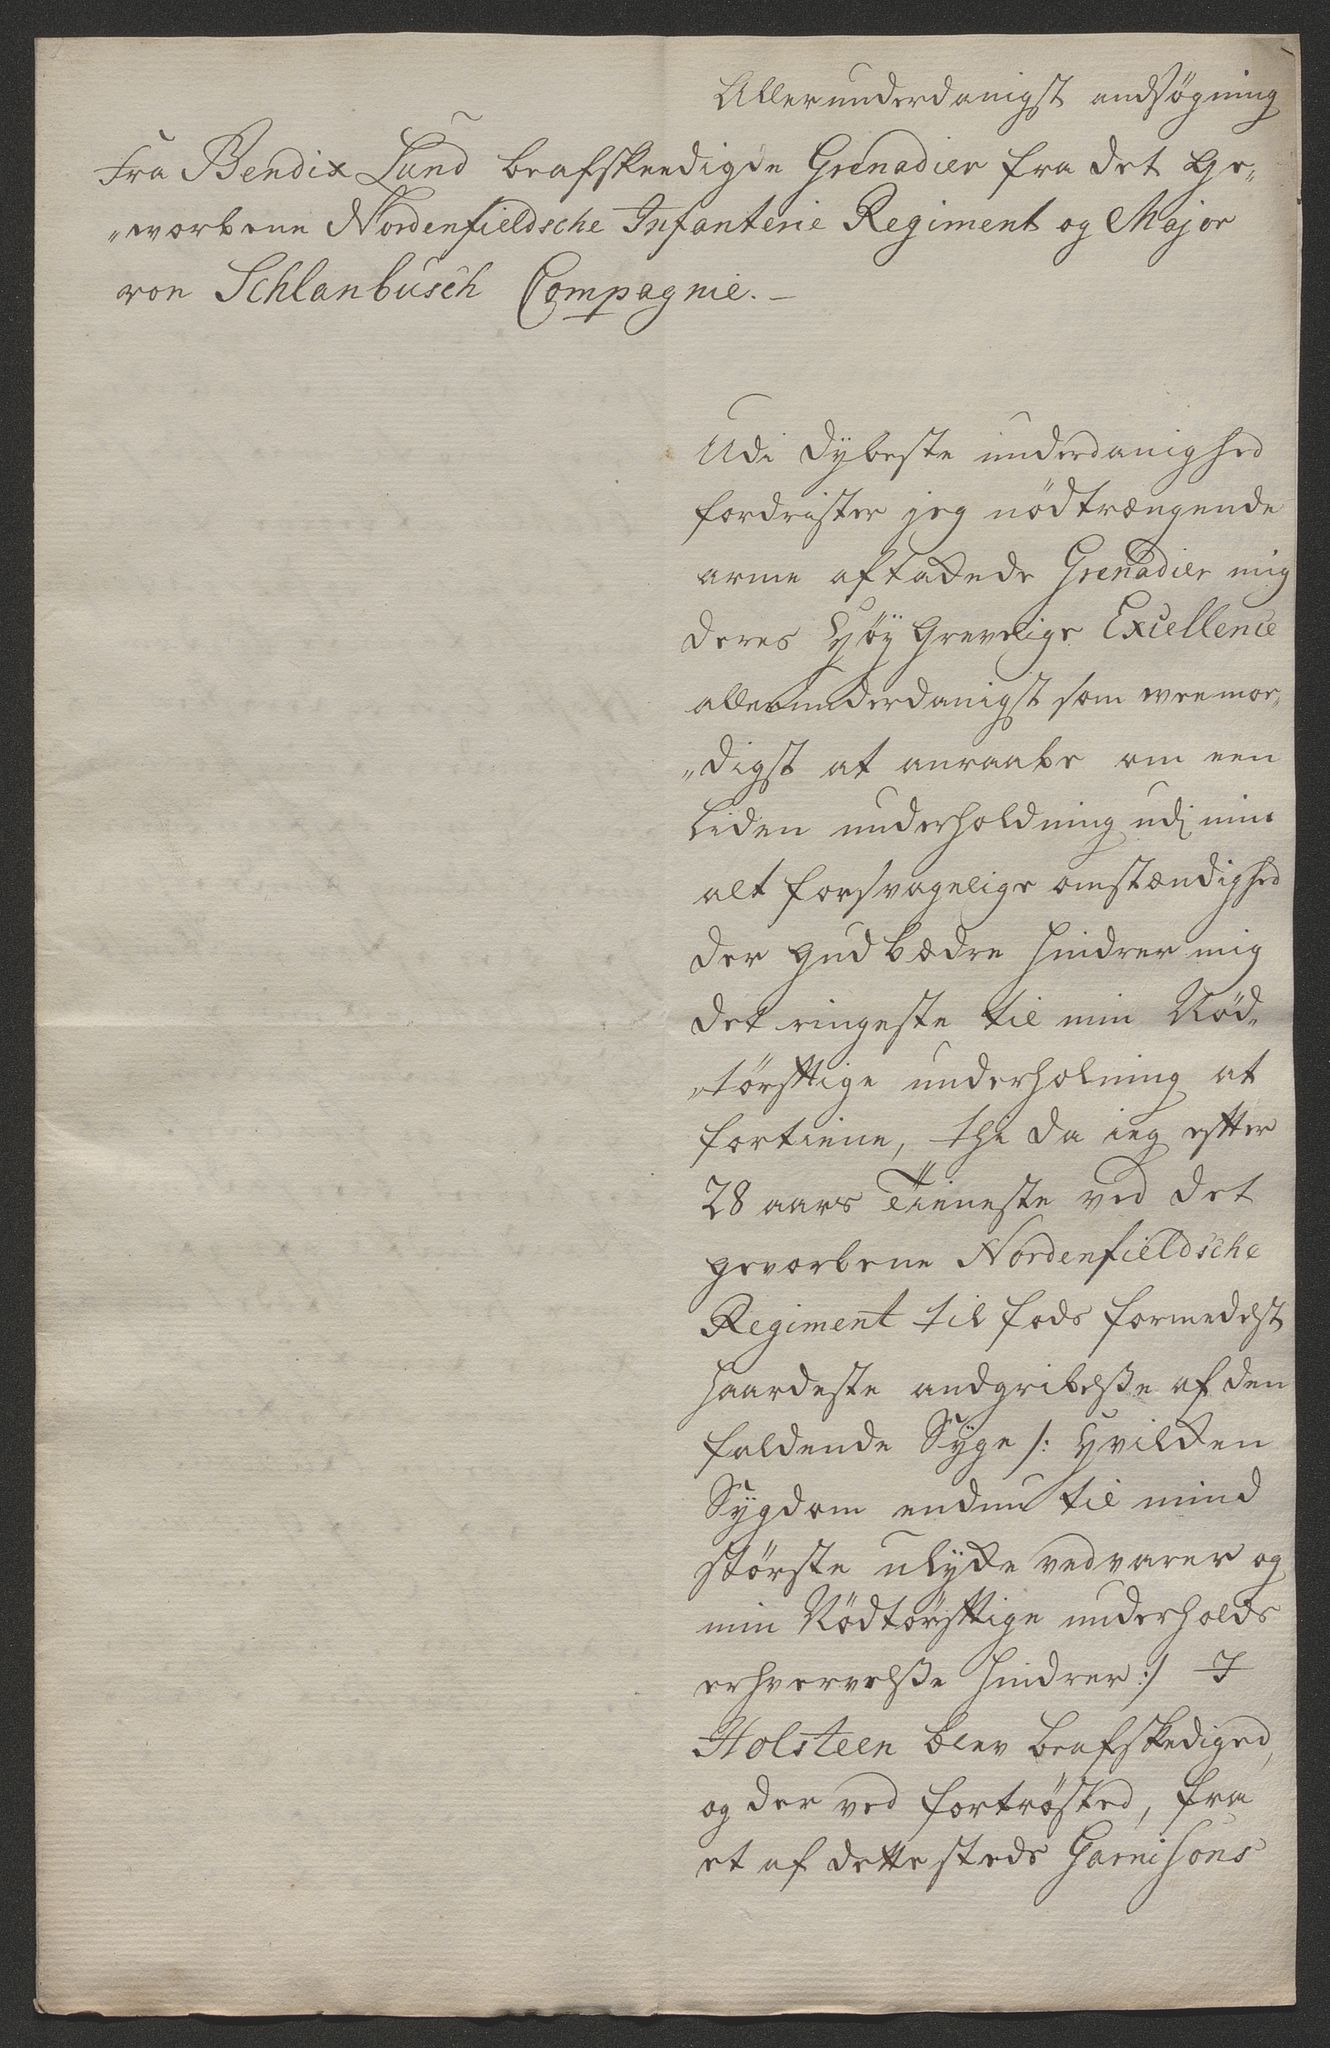 Allerunderdanigst andsøgning
Fra Bendix Lund beafskeedigde Grenadier fra det Ge„
„worbene Nordenfieldsche Infanterie Regiment og Major
von Schlanbusch Compagnie. —
Udi dybeste underdanighed
fordrister jeg nödtrængende
arme aftakede Grenadier mig
deres Høy Grevelige Excellence
allerunderdanigst som veemo„
„digst at anraabe om een
liden underholdning udj min
alt forsvagelige omstændighed
der Gud bædre hindrer mig
det ringeste til min Nød„
„törfftige underholning at
fortiene, thi da ieg effter
28 aars Tieneste ved det
gevorbene Nordenfieldsche
Regiment til fods formedelst
haardeste andgribelße af den
faldende Syge /: Hvilken
Sygdom endnu til mind
störste ulykke vedvarer og
min Nödtörfftige underholds
erhvervelße hindrer :/ I
Holsteen blev beafskediged,
og der ved fortrösted, fra
et af dette steds Garnisons